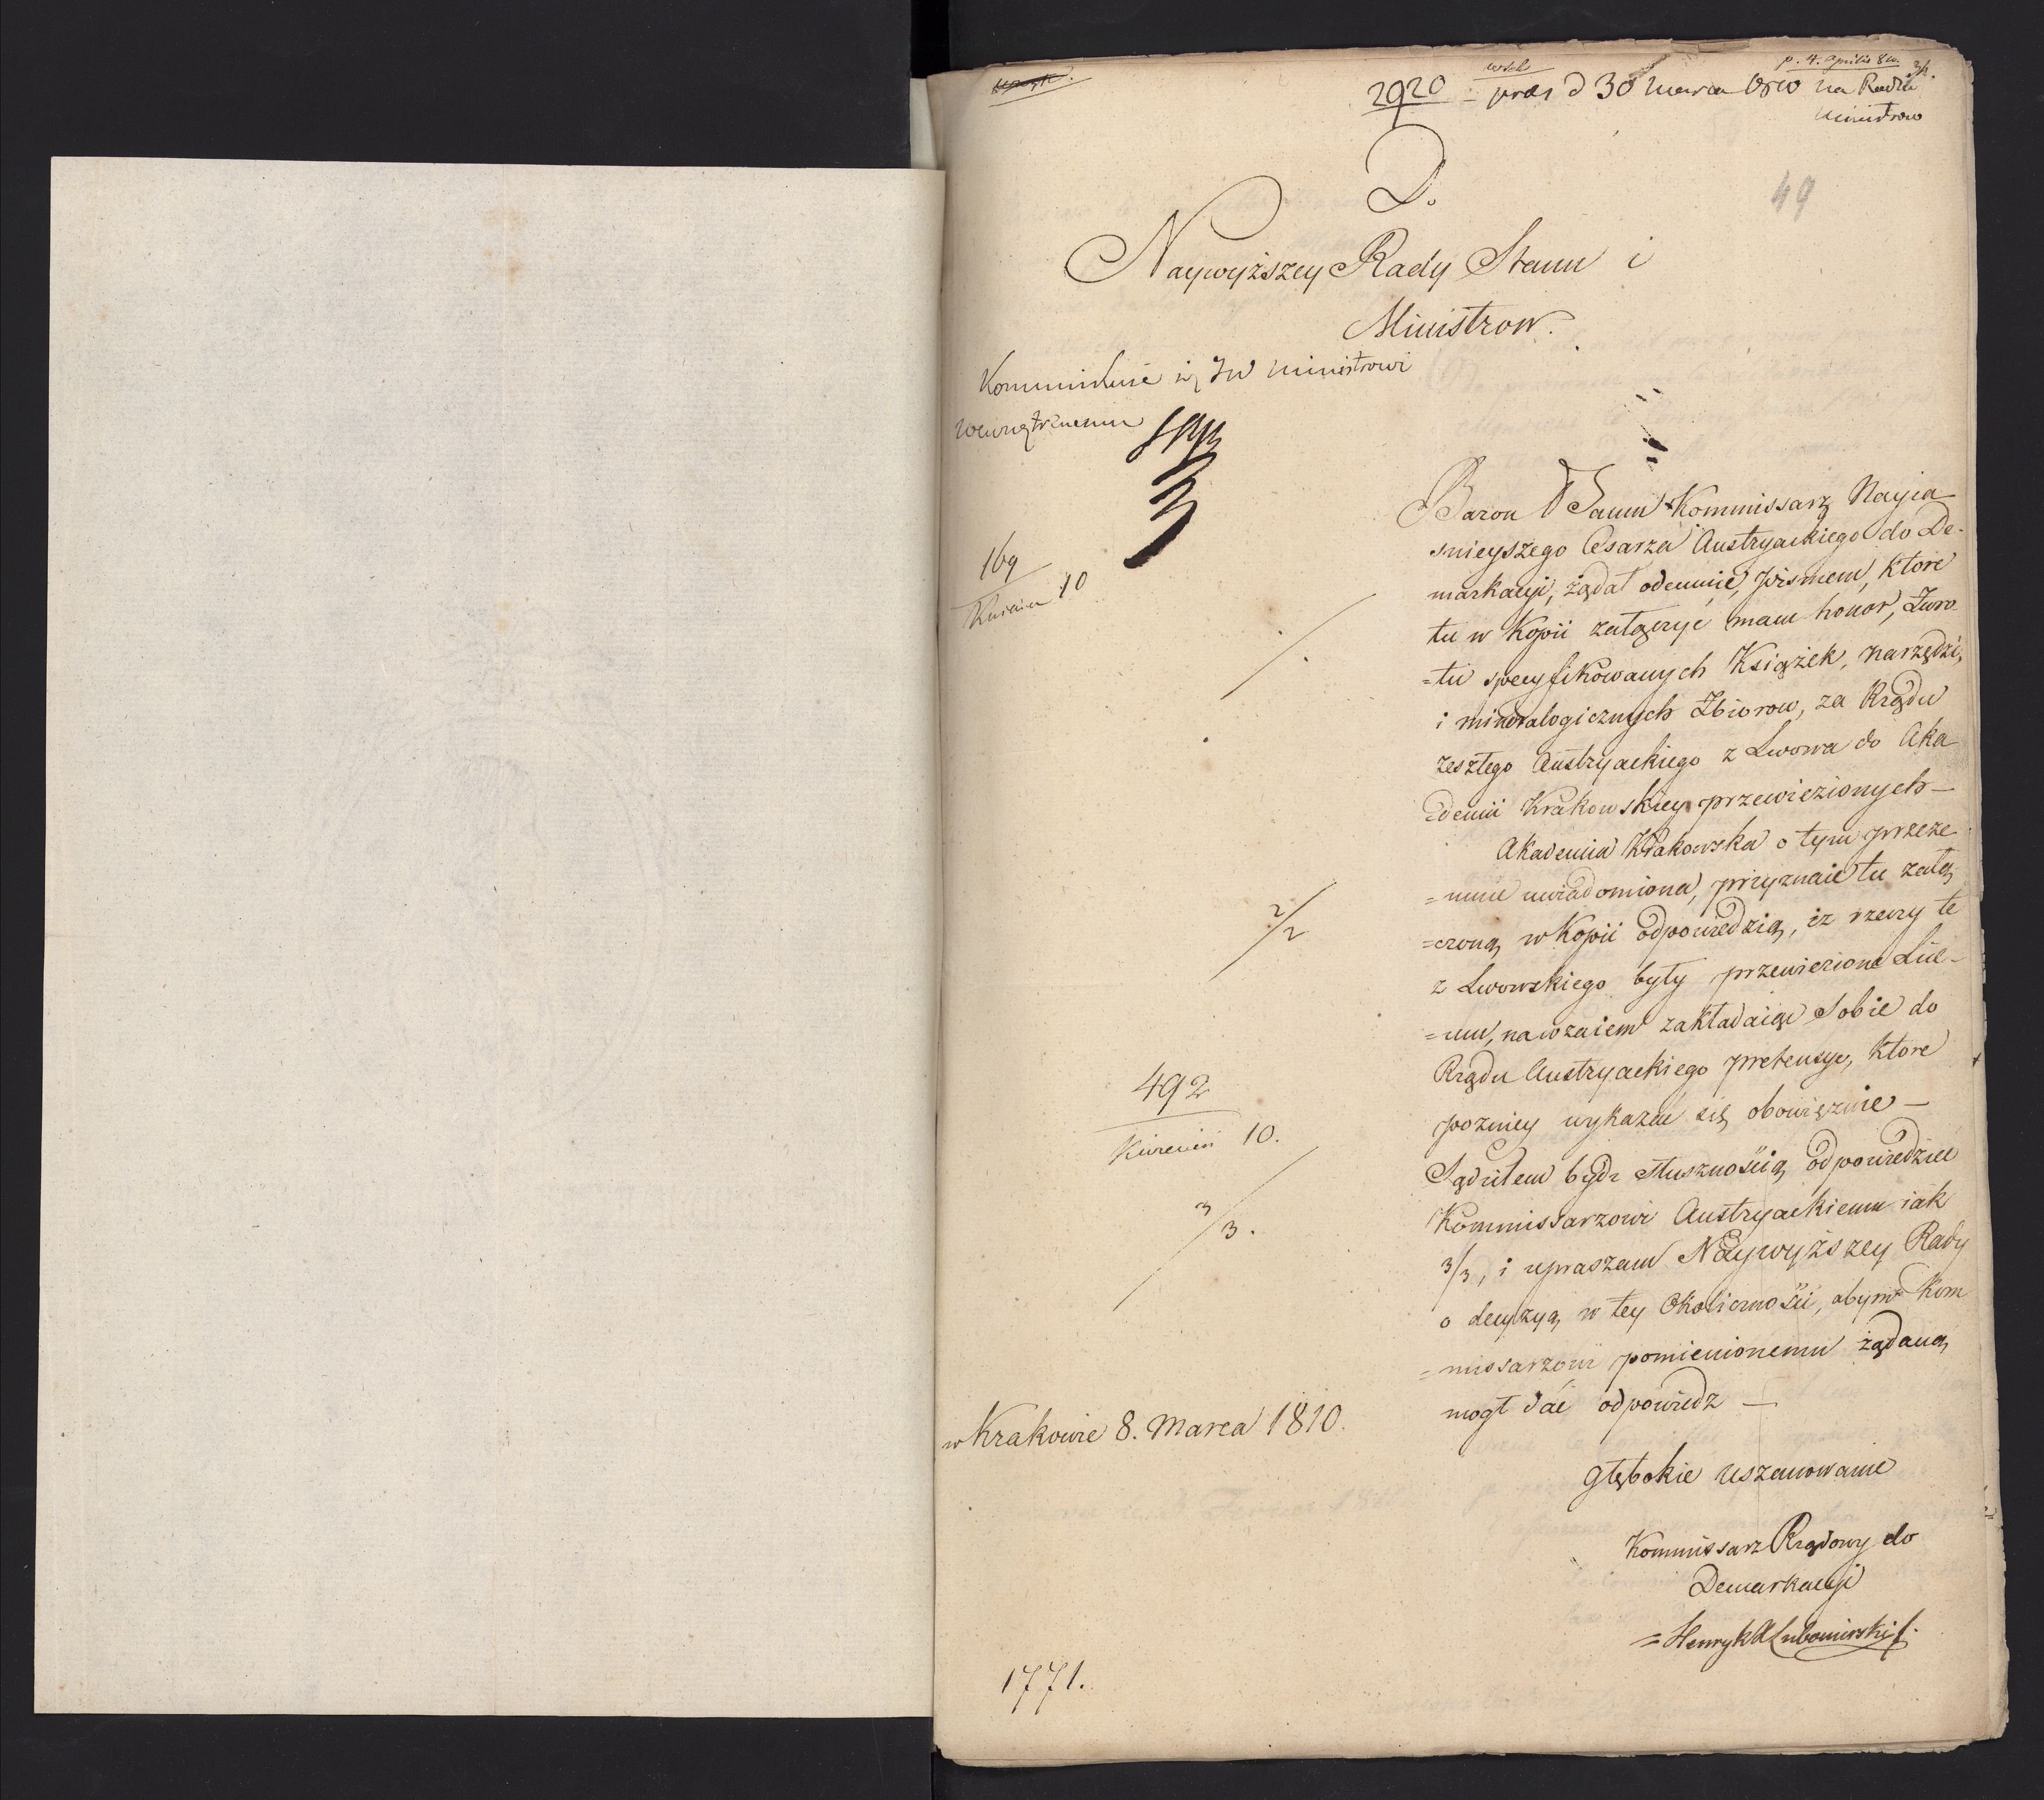 2920 pres d 30 Marca 1810 na Radzie
Ministrow
p. 4. Aprilis 810.
49
D.
Naywyższey Rady Stanu i
Ministrow.
Kommunikuie się JW Ministrowi
wewnętrznemu
169
Kwietnia 10
Baron Kommissarz Nayia
snieyszego Cesarza Austryackiego do De-
markacyi, żądał odemnie, pismem, ktore
tu w Kopii załączyć mam honor, Zwro
=tu specyfikowanych Książek, narzędzi,
i mineralogicznych Zbiorow, za Rządu
zeszłego Austryackiego z Lwowa do Aka
demii Krakowskiey przewiezionych —
Akademia Krakowska o tym przeze
=mnie uwiadomiona, przyznaie tu załą
=czoną w Kopii odpowiedzią, iż rzeczy te
2/2
z Lwowskiego były przewiezione Lice-
=um, nawzaiem zakładaiąc sobie do
Rządu Austryackiego pretensye, ktore
pozniey wykazać się obowięzuie —
492
Kwiecień 10.
Sądziłem bydz słusznością odpowiedziec
Kommissarzowi Austryackiemu iak
3/3.
3/3, i upraszam Naywyższey Rady
o decyzyą w tey Okoliczności, abym Kom
=missarzowi pomienionemu żądaną
mogł dać odpowiedz —
w Krakowie 8. Marca 1810.
głębokie uszanowanie
Kommissarz Rządowy do
Demarkacyi
=Henryk X Lubomirski
1771.